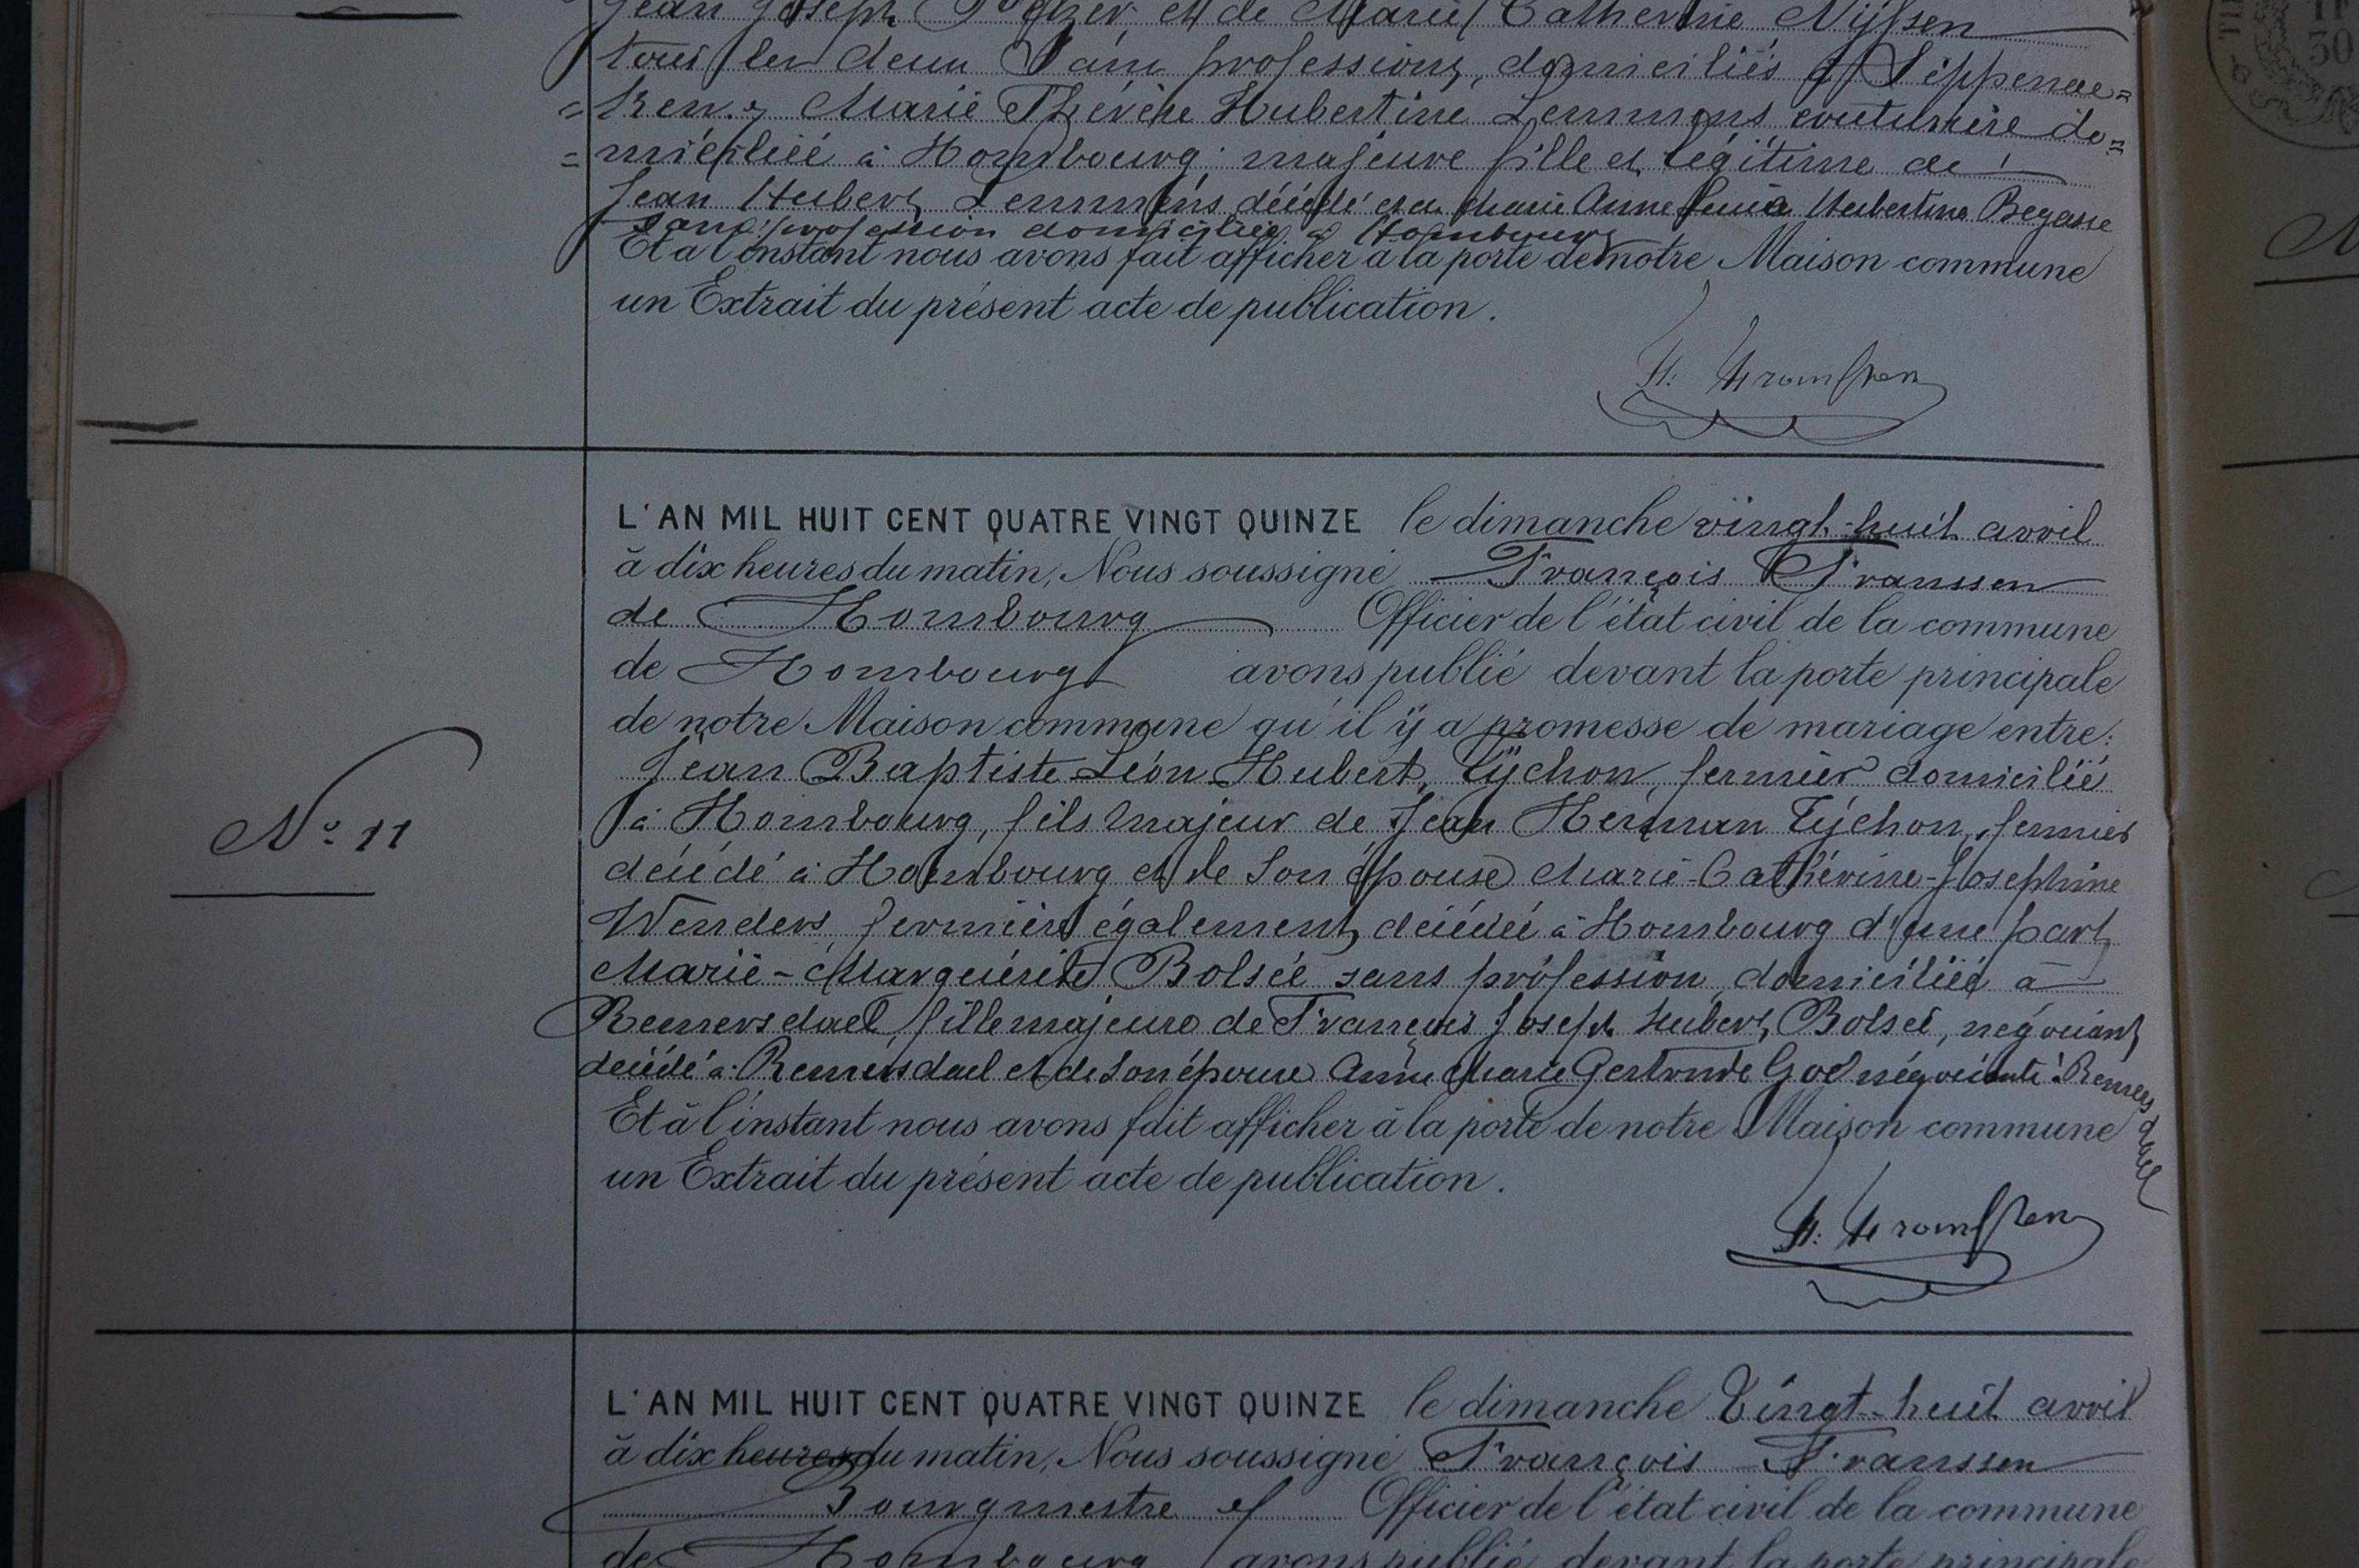 Jean Joseph et de Marie Catherine Nijssen
tous les deux sans profession, domiciliés à Sippenae=
=ken. & Marie Thérèse Hubertine Lemmens couturière do=
=miciliée à Hombourg majeure fille et légitime de
Jean Hubert Lemmens décédé et de Marie Anne Hubertine Begasse
sans profession domiciliée à Hombourg
Et à l'instant nous avons fait afficher à la porte de notre Maison commune
un Extrait du présent acte de publication.
L'AN MIL HUIT CENT QUATRE VINGT QUINZE le dimanche vingt-huit avril
à dix heures du matin, Nous soussigné François Franssen
de Hombourg Officier de l'état civil de la commune
de Hombourg avons publié devant la porte principale
de notre Maison commune qu'il ÿ a promesse de mariage entre:
Jean Baptiste Léon Hubert Tÿchon, fermier domicilié
à Hombourg, fils majeur de Jean Herman Tÿchon, fermier
décédé à Hombourg et de son épouse Marie-Cathérine-Josephine
Wenders, fermière également décédée à Hombourg d'une part
Marie-Marguérite Bolsée sans profession, domiciliée à
Remersdael, fille majeure de François Joseph Hubert Bolsée, négociant
décédé à Remersdael et de son épouse Anne Marie Gertrude négociante à Remersdael
Et à l'instant nous avons fait afficher à la porte de notre Maison commune
un Extrait du présent acte de publication.
N° 11
F. Franssen
L'AN MIL HUIT CENT QUATRE VINGT QUINZE le dimanche Vingt-huit avril
à dix heures du matin, Nous soussigné François Franssen
Bourgmestre et Officier de l'état civil de la commune
de Hombourg avons publié devant la porte principale